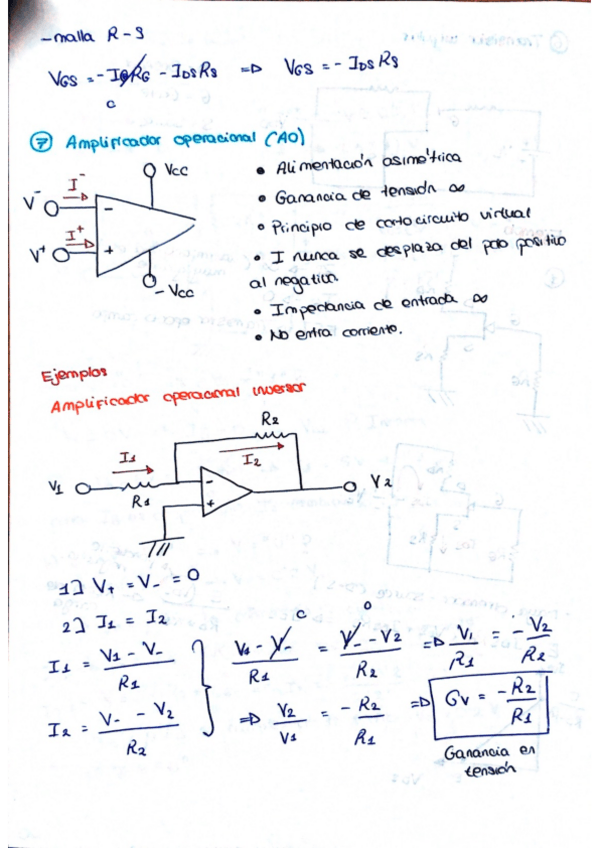 -malla R-S
VGS = -IGRG - IDSRS => VGS = - IDS RS
0
⑦ Amplificador operacional (AO)
Vcc
I⁻
V⁻
-
I⁺
V⁺
+
- Vcc
• Alimentación asimétrica
• Ganancia de tensión ∞
• Principio de cortocircuito virtual
• I nunca se desplaza del polo positivo
al negativo
• Impedancia de entrada ∞
• No entra corriente.
Ejemplos
Amplificador operacional inversor
R2
I1
I2
V1
R1
-
+
V2
1] V+ = V- = 0
2] I1 = I2
I1 = (V1 - V-)/R1
I2 = (V- - V2)/R2
0 0
(V1 - V-)/R1 = (V- - V2)/R2 => V1/R1 = - V2/R2
=> V2/V1 = - R2/R1 => Gv = - R2/R1
Ganancia en
tensión